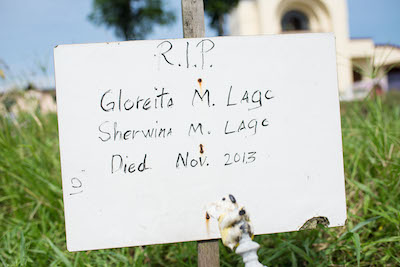 R.I.P.
Gloreita M. Lage
Sherwina M. Lage
Died Nov. 2013
10.